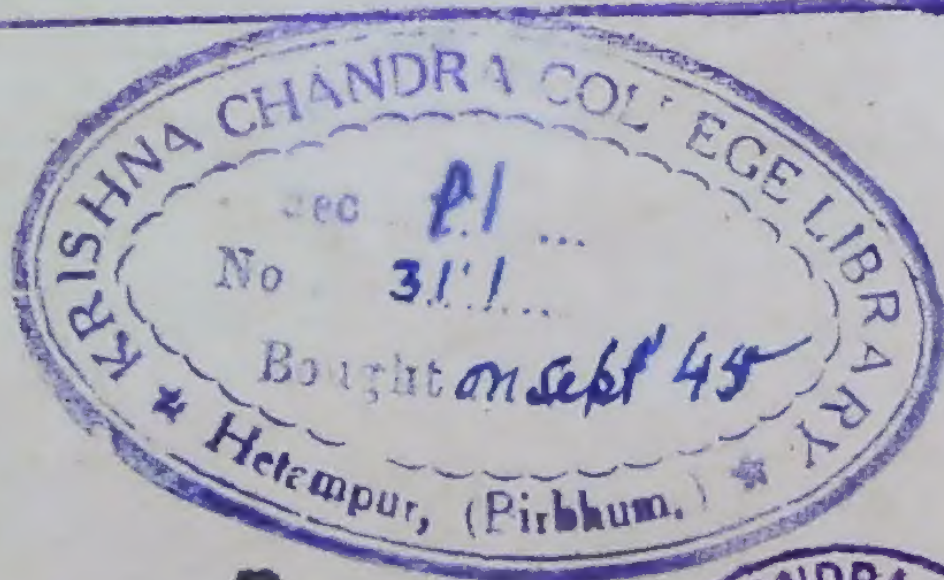 KRISHNA CHANDRA COLLEGE LIBRARY
Sec P.1 ...
No 311...
Bought on Sept 45
★ Hetampur, (Birbhum.) ★
NDRA